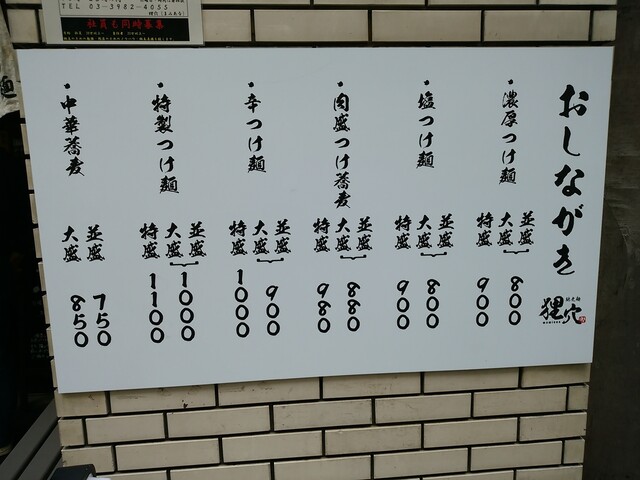 TEL 03-3982-4055
社員も同時募集
おしながき
狸穴
・濃厚つけ麺
並盛
大盛
800
特盛
900
・塩つけ麺
並盛
大盛
800
特盛
900
・肉盛つけ蕎麦
並盛
大盛
880
特盛
980
・辛つけ麺
並盛
大盛
900
特盛
1000
・特製つけ麺
並盛
大盛
1000
特盛
1100
・中華蕎麦
並盛
750
大盛
850